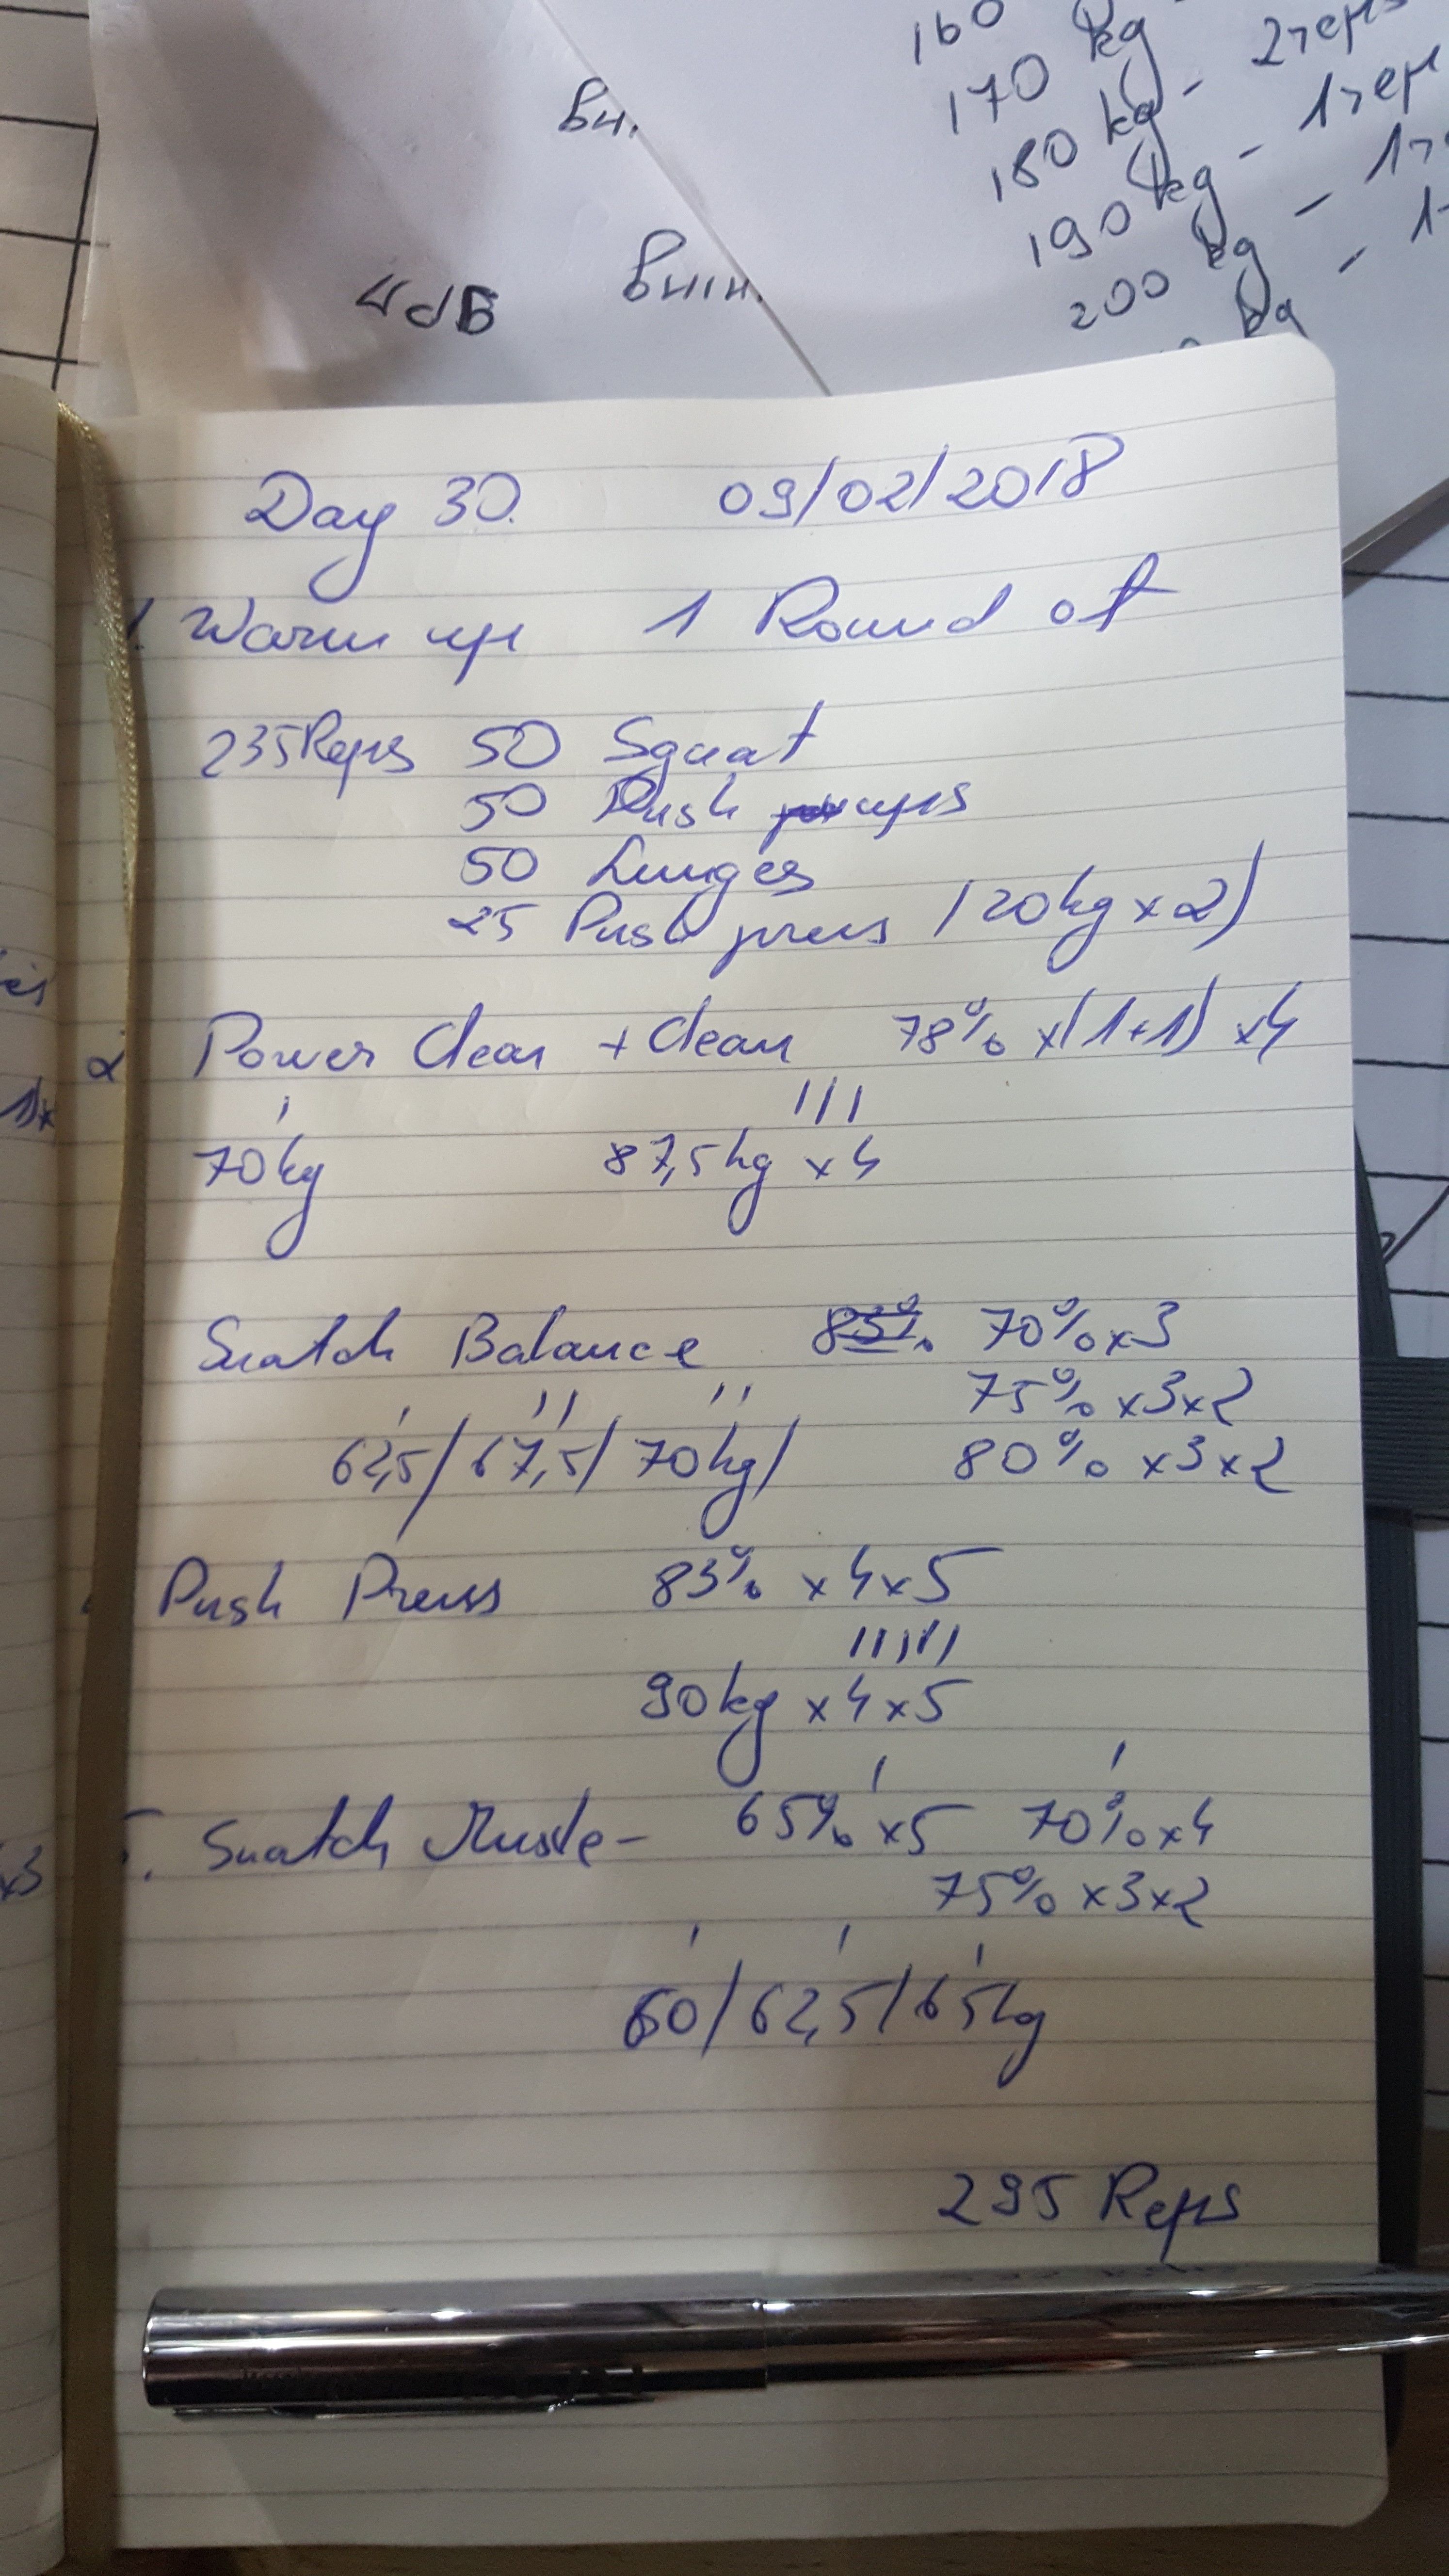 160
170 kg
180 kg - 2 reps
190 kg - 1 rep
200 kg - 1
kg - 1
вн.
4 dB внин.
Day 30. 09/02/2018
1. Warm up 1 Round of
235 Reps 50 Squat
50 Push ups
50 Lunges
25 Push press (20kg x 2)
2 Power Clean + Clean 78% x (1+1) x4
70kg 87,5kg x 4
Snatch Balance 83% 70% x3
75% x3x2
62,5/67,5/70kg/ 80% x3x2
Push Press 83% x4x5
90kg x4x5
5. Snatch Muscle - 65% x5 70% x4
75% x3x2
60/62,5/65kg
295 Reps